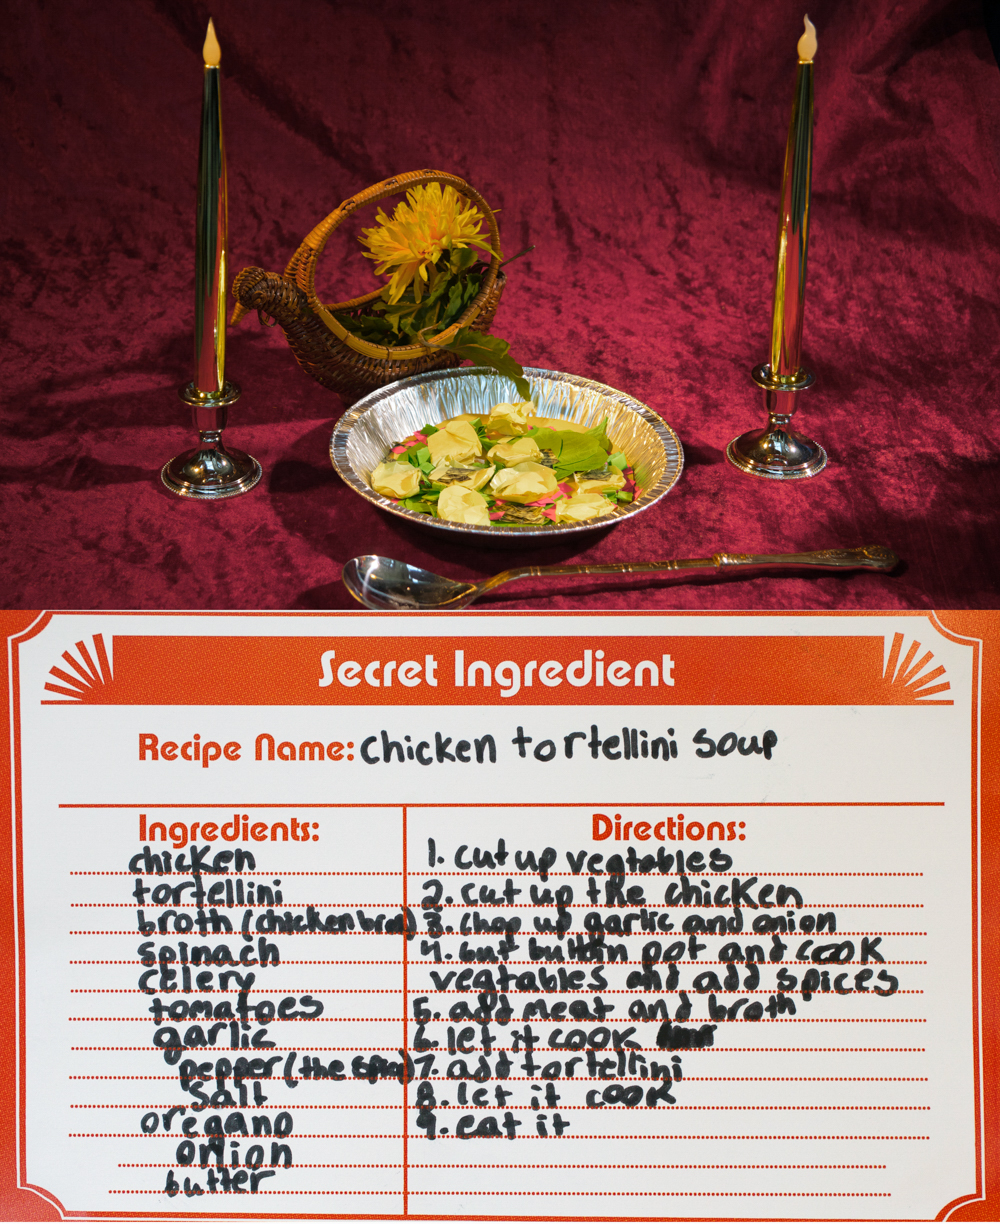 Secret Ingredient
Recipe Name: chicken tortellini soup
Ingredients:
chicken
tortellini
broth (chicken broth)
spinach
celery
tomatoes
garlic
pepper (the spice)
salt
oregano
onion
butter
Directions:
1. cut up vegtables
2. cut up the chicken
3. chop up garlic and onion
4. but buttin pot and cook
vegtables and add spices
5. add meat and broth
6. let it cook
7. add tortellini
8. let it cook
9. eat it